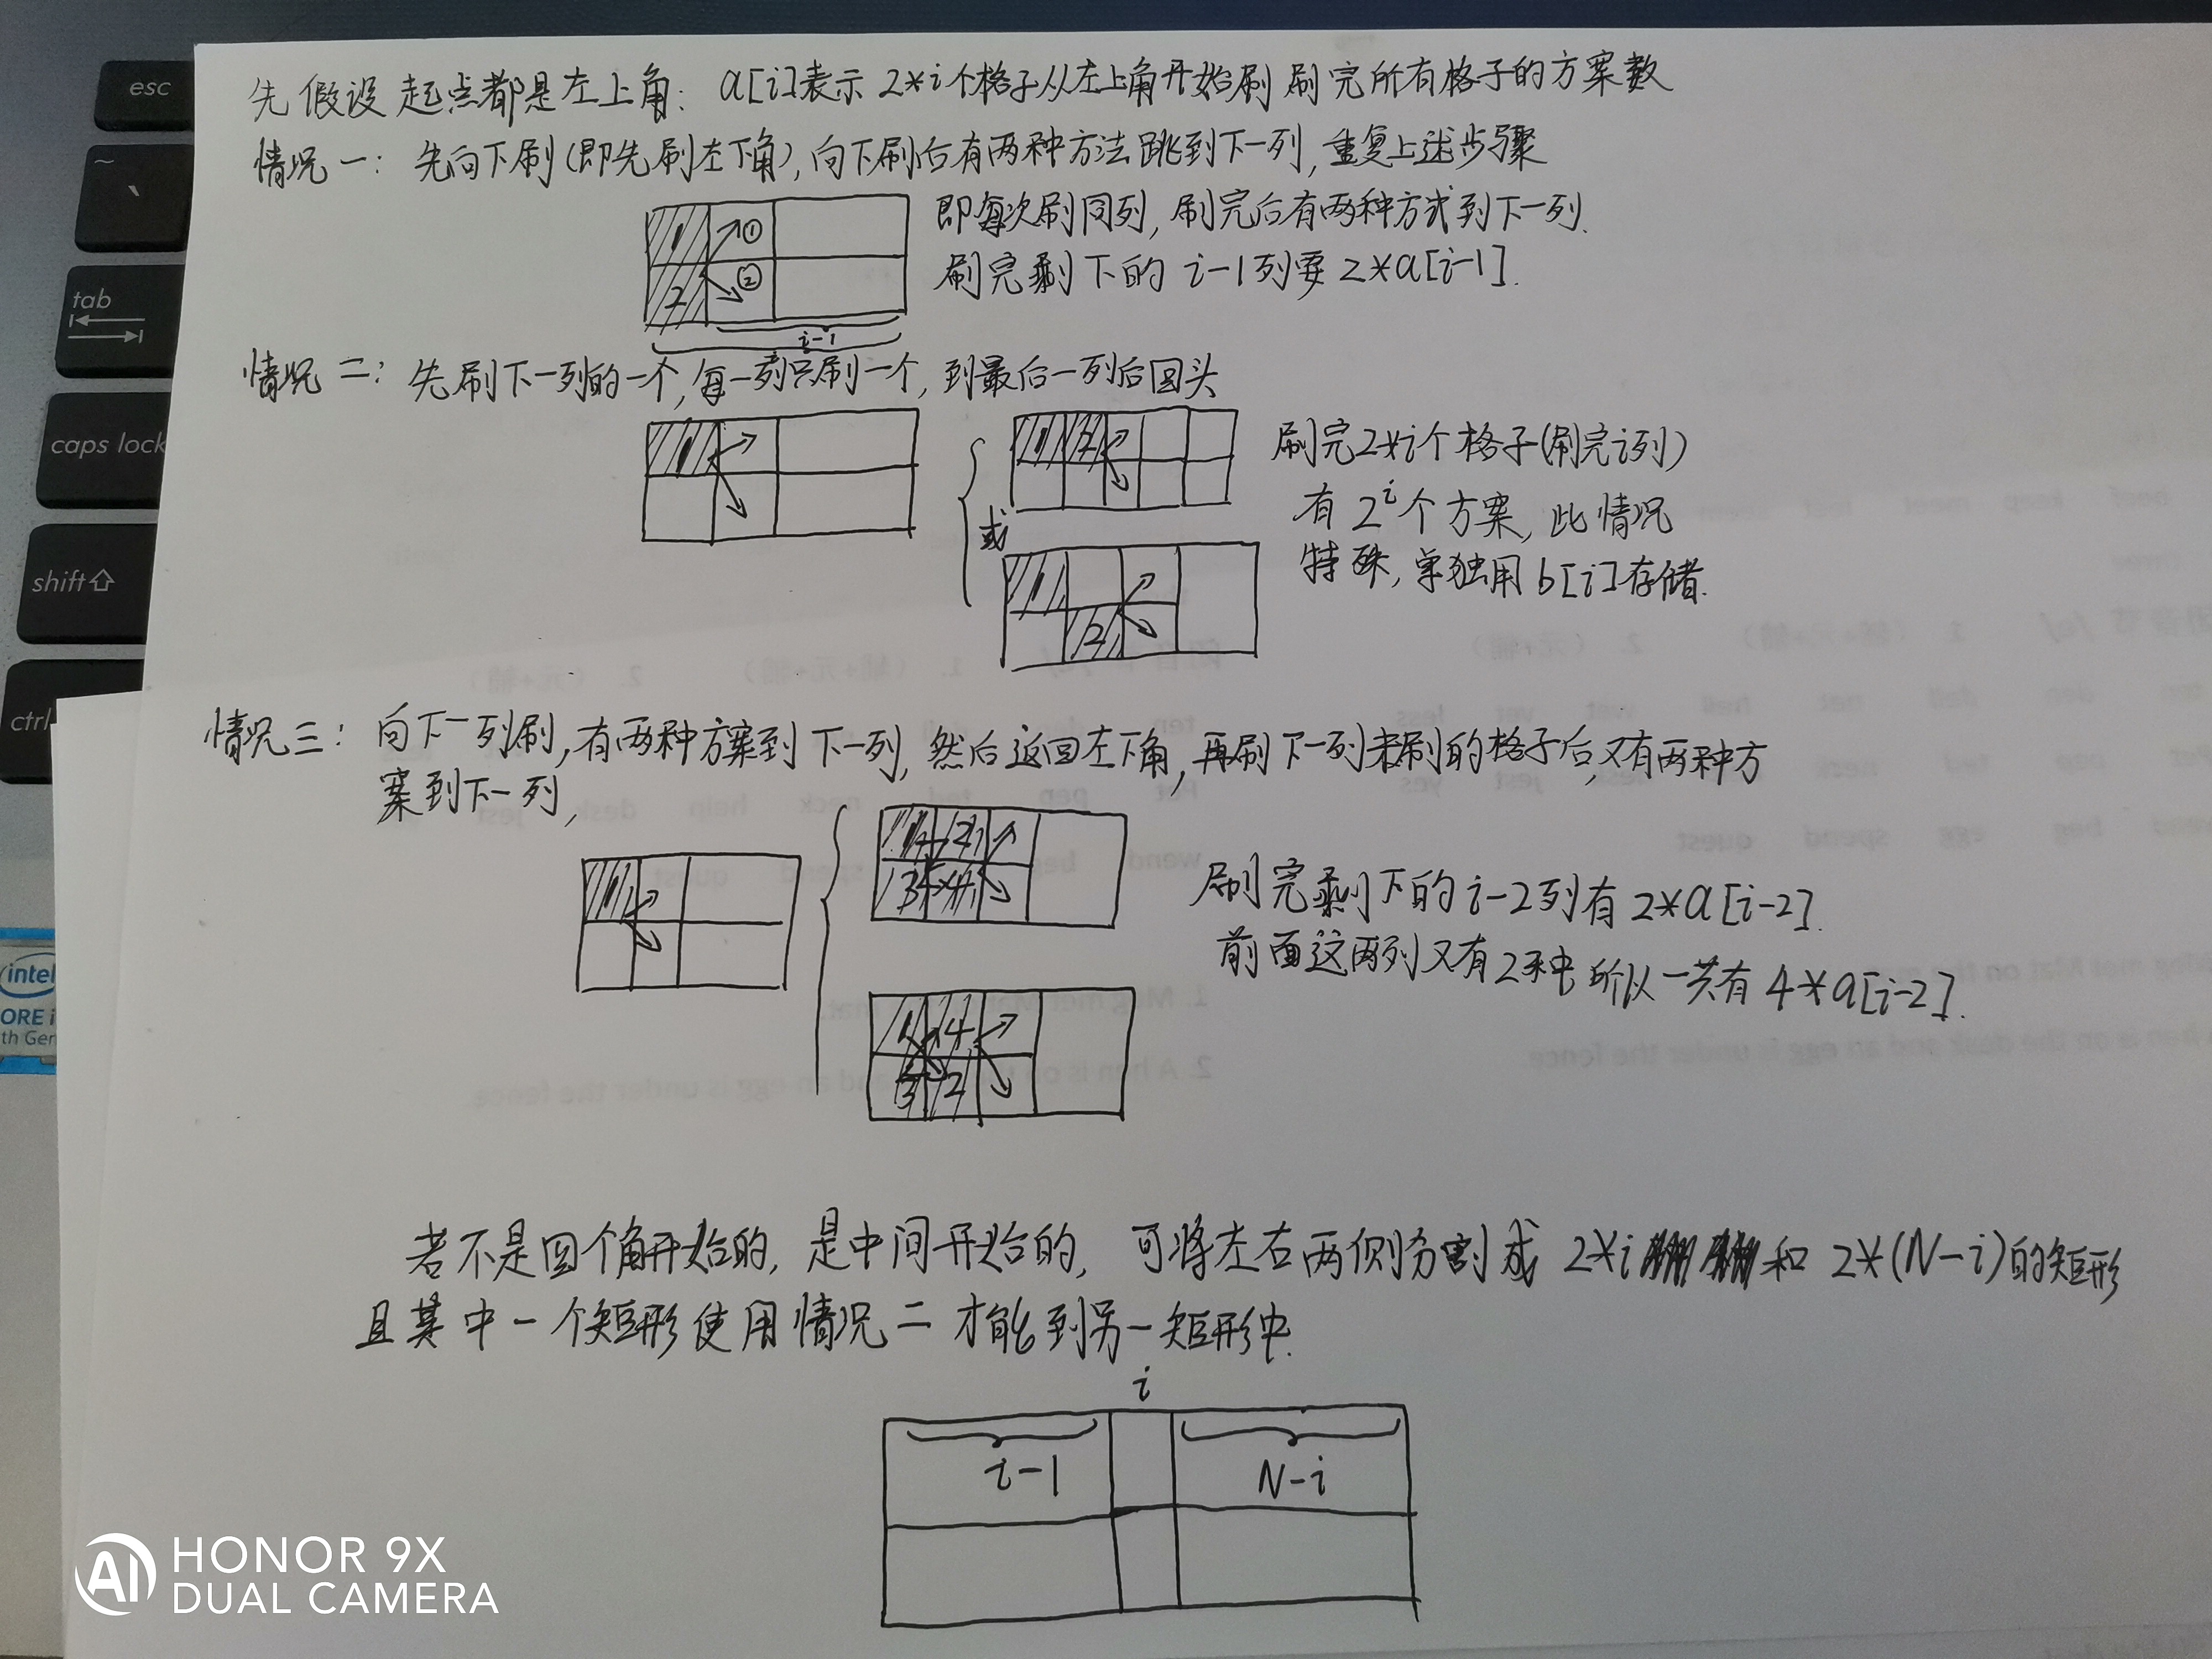 先假设起点都是左上角：a[i]表示2*i个格子从左上角开始刷刷完所有格子的方案数
情况一：先向下刷(即先刷左下角),向下刷后有两种方法跳到下一列,重复上述步骤
1
2
①
②
i-1
即每次刷同列,刷完后有两种方式到下一列.
刷完剩下的i-1列要2*a[i-1].
情况二：先刷下一列的一个,每一列只刷一个,到最后一列后回头
1
1 2
或
1
2
刷完2*i个格子(刷完i列)
有2^i个方案,此情况
特殊,单独用b[i]存储.
情况三：向下一列刷,有两种方案到下一列,然后返回左下角,再刷下一列未刷的格子后,又有两种方
案到下一列,
1
1 2
3 4
1 4
3 2
刷完剩下的i-2列有2*a[i-2].
前面这两列又有2种所以一共有4*a[i-2].
若不是四个角开始的,是中间开始的,可将左右两侧分割成2*i和2*(N-i)的矩形
且其中一个矩形使用情况二才能到另一矩形中.
i
i-1
N-i
esc
~
、
tab
caps lock
shift
ctrl
intel
CORE i
th Gen
AI
HONOR 9X
DUAL CAMERA